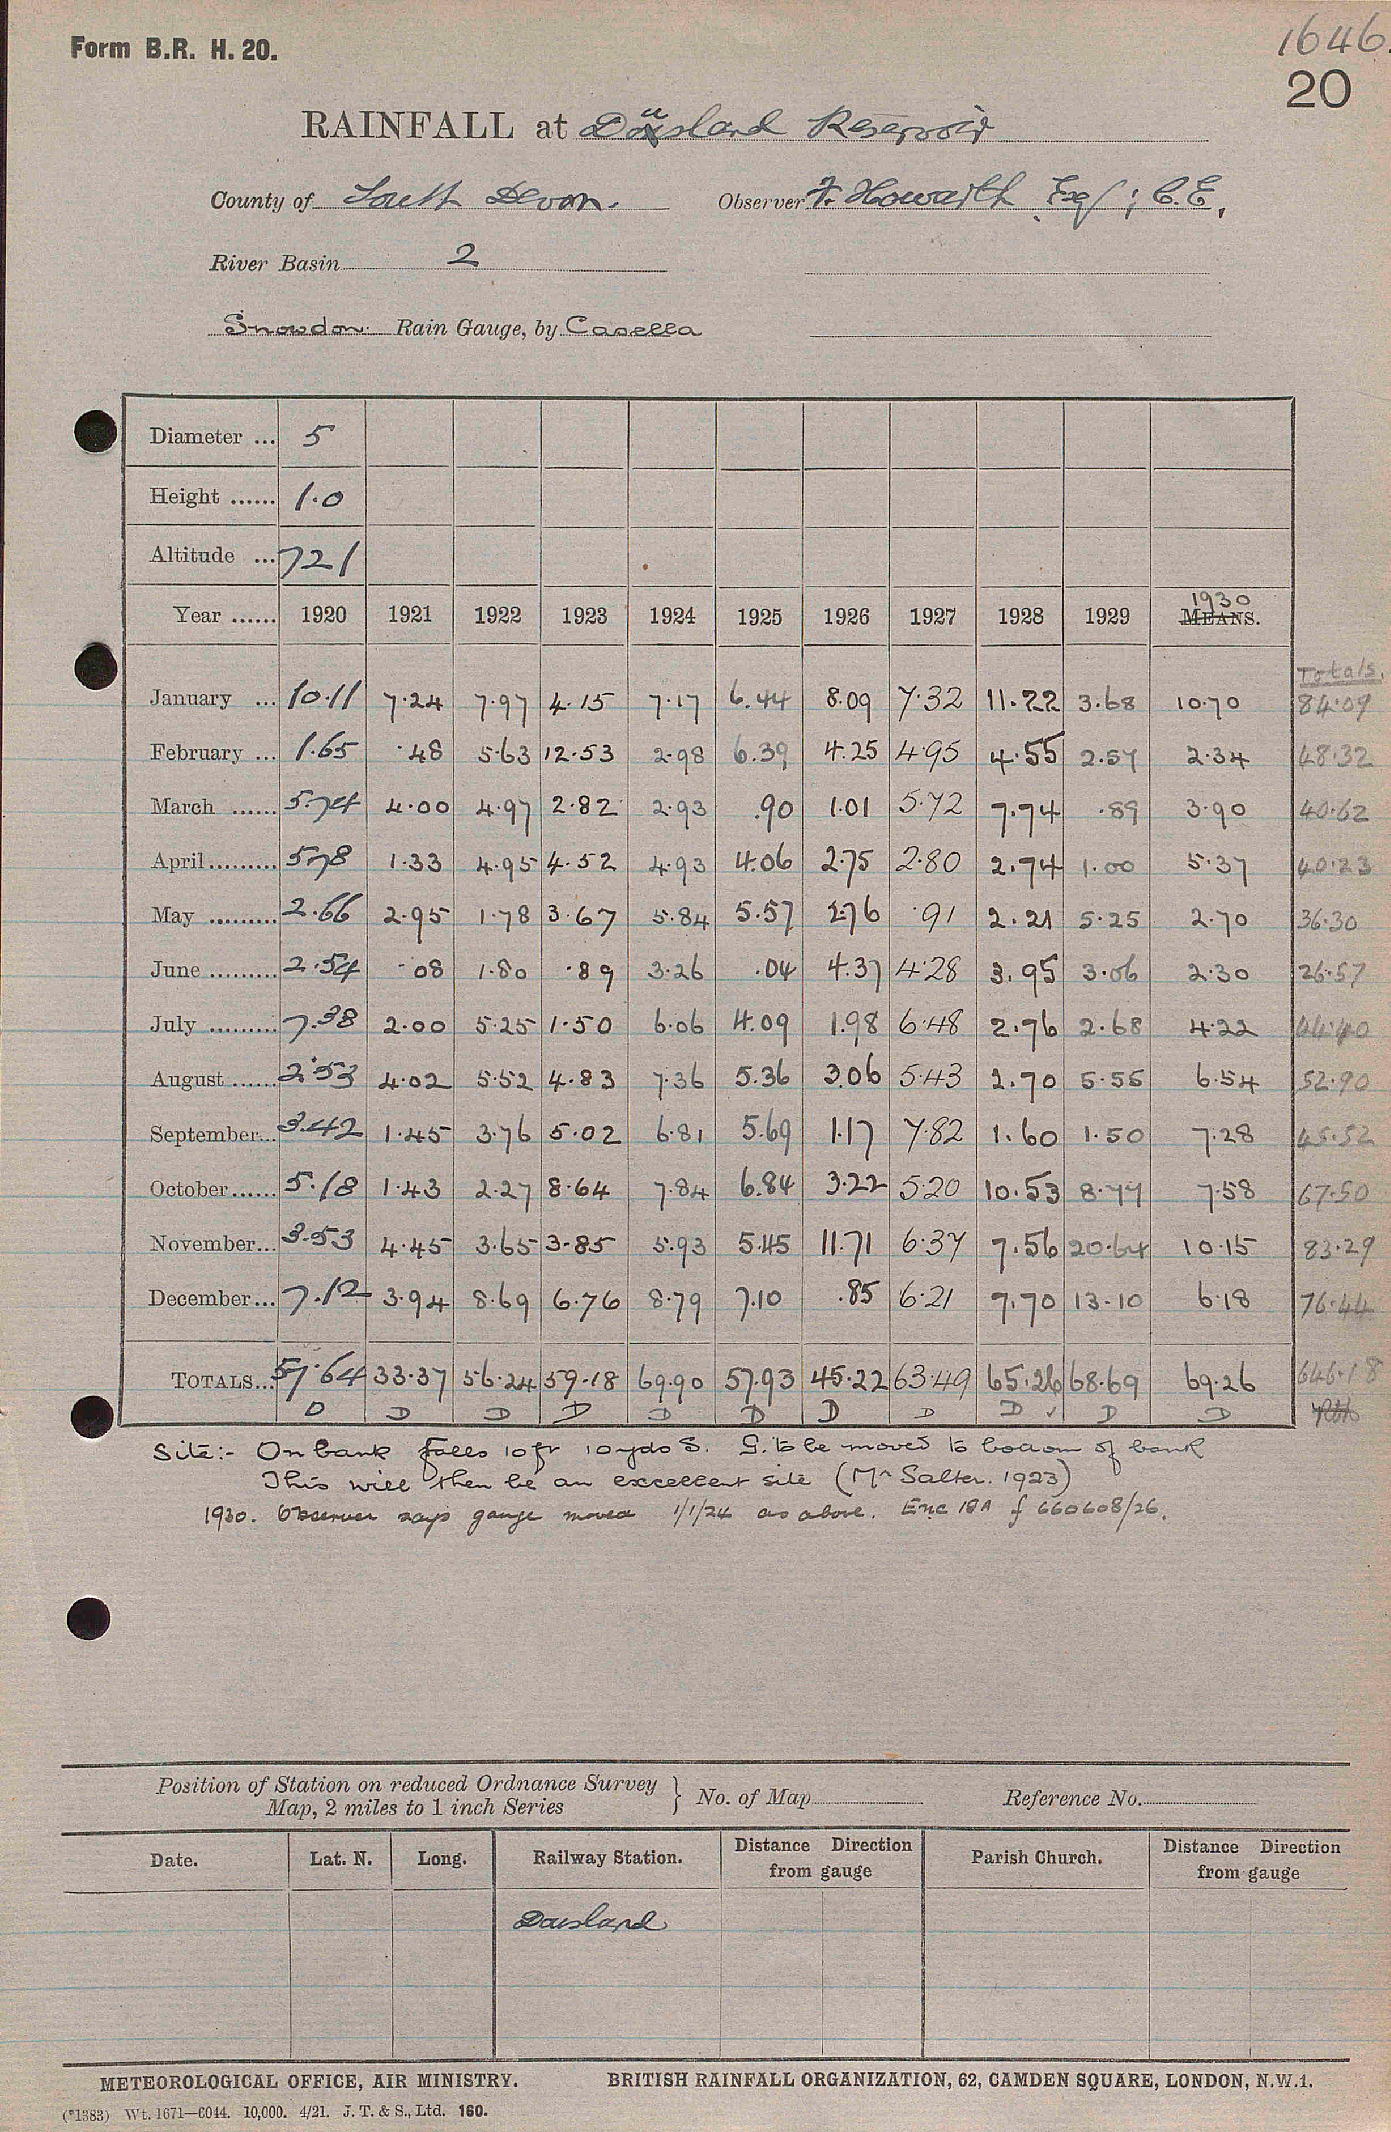 Form B.R. H. 20.
1646.
20
RAINFALL at Dousland Reservoir
County of South Devon. Observer F. Howarth Esq; C.E.
River Basin 2
Snowdon Rain Gauge, by Casella
Diameter ... 5
Height ...... 1.0
Altitude ... 721
Year ...... 1920 1921 1922 1923 1924 1925 1926 1927 1928 1929 1930 MEANS.
Totals.
January ... 10.11 7.24 7.97 4.15 7.17 6.44 8.09 7.32 11.22 3.68 10.70 84.09
February ... 1.65 .48 5.63 12.53 2.98 6.39 4.25 4.95 4.55 2.57 2.34 48.32
March ...... 5.74 4.00 4.97 2.82 2.93 .90 1.01 5.72 7.74 .89 3.90 40.62
April......... 5.78 1.33 4.95 4.52 4.93 4.06 2.75 2.80 2.74 1.00 5.37 40.23
May ......... 2.66 2.95 1.78 3.67 5.84 5.57 2.76 .91 2.21 5.25 2.70 36.30
June ......... 2.54 .08 1.80 .89 3.26 .04 4.37 4.28 3.95 3.06 2.30 26.57
July ......... 7.38 2.00 5.25 1.50 6.06 4.09 1.98 6.48 2.76 2.68 4.22 44.40
August ...... 2.53 4.02 5.52 4.83 7.36 5.36 3.06 5.43 2.70 5.55 6.54 52.90
September... 3.42 1.45 3.76 5.02 6.81 5.69 1.17 7.82 1.60 1.50 7.28 45.52
October...... 5.18 1.43 2.27 8.64 7.84 6.84 3.22 5.20 10.53 8.77 7.58 67.50
November... 3.53 4.45 3.65 3.85 5.93 5.45 11.71 6.37 7.56 20.64 10.15 83.29
December... 7.12 3.94 8.69 6.76 8.79 7.10 .85 6.21 7.70 13.10 6.18 76.44
TOTALS... 57.64 33.37 56.24 59.18 69.90 57.93 45.22 63.49 65.26 68.69 69.26 646.18
D D D D D D D D D ✓ D D
Site:- On bank falls 10 ft 10 yds S. G. to be moved to bottom of bank
This will then be an excellent site (Mr Salter. 1923)
1930. Observer says gauge moved 1/1/24 as above. Enc 18A f 660608/26.
Position of Station on reduced Ordnance Survey Map, 2 miles to 1 inch Series } No. of Map Reference No.
Date. Lat. N. Long. Railway Station. Distance Direction from gauge Parish Church. Distance Direction from gauge
Dousland
METEOROLOGICAL OFFICE, AIR MINISTRY. BRITISH RAINFALL ORGANIZATION, 62, CAMDEN SQUARE, LONDON, N.W.1.
(*1383) Wt. 1671—6044. 10,000. 4/21. J. T. & S., Ltd. 160.